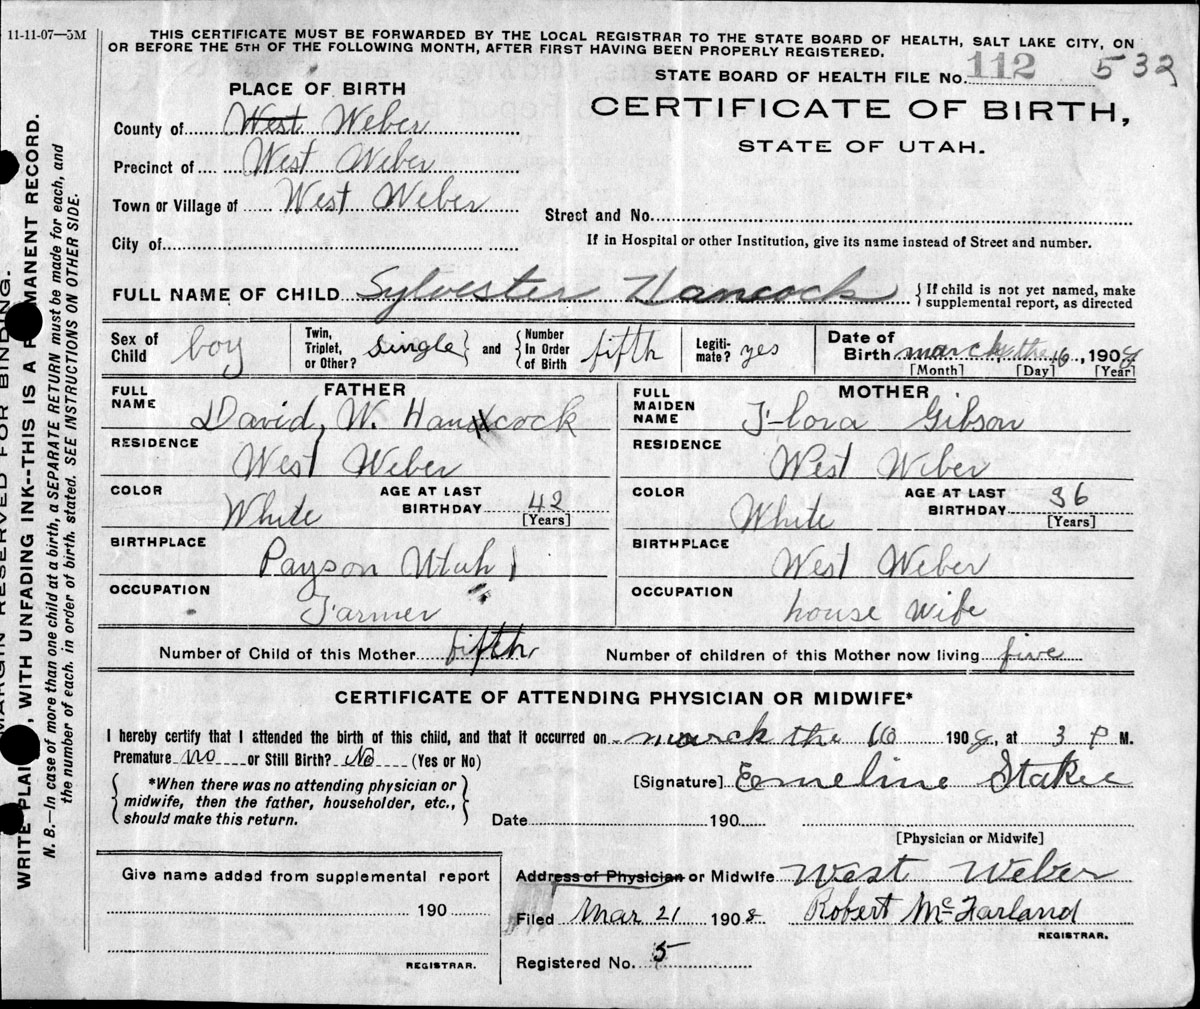 11-11-07—5M
THIS CERTIFICATE MUST BE FORWARDED BY THE LOCAL REGISTRAR TO THE STATE BOARD OF HEALTH, SALT LAKE CITY, ON
OR BEFORE THE 5TH OF THE FOLLOWING MONTH, AFTER FIRST HAVING BEEN PROPERLY REGISTERED.
STATE BOARD OF HEALTH FILE No. 112 532
PLACE OF BIRTH
CERTIFICATE OF BIRTH,
STATE OF UTAH.
County of West Weber
Precinct of West Weber
Town or Village of West Weber
Street and No.
City of
If in Hospital or other Institution, give its name instead of Street and number.
FULL NAME OF CHILD Sylvester Hancock { If child is not yet named, make
supplemental report, as directed
Sex of Child boy Twin, Triplet, or Other? single } and { Number In Order of Birth fifth Legiti-mate? yes Date of Birth march the 16, 1908
[Month] [Day] [Year]
FATHER MOTHER
FULL NAME David, W. Hancock FULL MAIDEN NAME Flora Gibson
RESIDENCE West Weber RESIDENCE West Weber
COLOR White AGE AT LAST BIRTHDAY 42 [Years] COLOR White AGE AT LAST BIRTHDAY 36 [Years]
BIRTHPLACE Payson Utah BIRTHPLACE West Weber
OCCUPATION Farmer OCCUPATION house wife
Number of Child of this Mother fifth Number of children of this Mother now living five
CERTIFICATE OF ATTENDING PHYSICIAN OR MIDWIFE*
I hereby certify that I attended the birth of this child, and that it occurred on march the 16 1908, at 3 P M.
Premature no or Still Birth? No (Yes or No)
[Signature] Emeline Staker
{ *When there was no attending physician or
midwife, then the father, householder, etc.,
should make this return. }
Date 190
[Physician or Midwife]
Give name added from supplemental report
190
REGISTRAR.
Address of Physician or Midwife West Weber
Filed Mar 21 1908 Robert McFarland
REGISTRAR.
Registered No. 5
MARGIN RESERVED FOR BINDING.
WRITE PLAI, WITH UNFADING INK--THIS IS A PMANENT RECORD.
N. B.—In case of more than one child at a birth, a SEPARATE RETURN must be made for each, and
the number of each, in order of birth, stated. SEE INSTRUCTIONS ON OTHER SIDE.